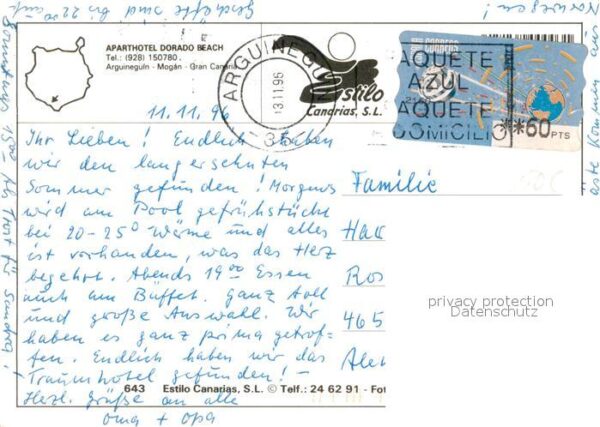 Geschäfte sind bis 22 00 auf
Norwegen!
APARTHOTEL DORADO BEACH
Tel.: (928) 150780.
Arguineguín - Mogán - Gran Canaria
ARGUINEG
13.11.96
Estilo
Canarias, S.L.
CORREOS
AQUETE
AZUL
AQUETE
DOMICILIO
**60 PTS
11.11.96
Ihr Lieben! Endlich haben
wir den langersehnten
Sommer gefunden! Morgens
wird am Pool gefrühstückt
bei 20-25° Wärme und alles
ist vorhanden, was das Herz
begehrt. Abends 19 00 Essen
auch am Büffet. Ganz toll
und große Auswahl. Wir
haben es ganz prima getrof-
fen. Endlich haben wir das
Traumhotel gefunden! -
Herzl. Grüße an alle
Oma + Opa
Familie
Ros
465
privacy protection
Datenschutz
643 Estilo Canarias, S.L. © Telf.: 24 62 91 - Fot
Trost für Sandra!
Kommen